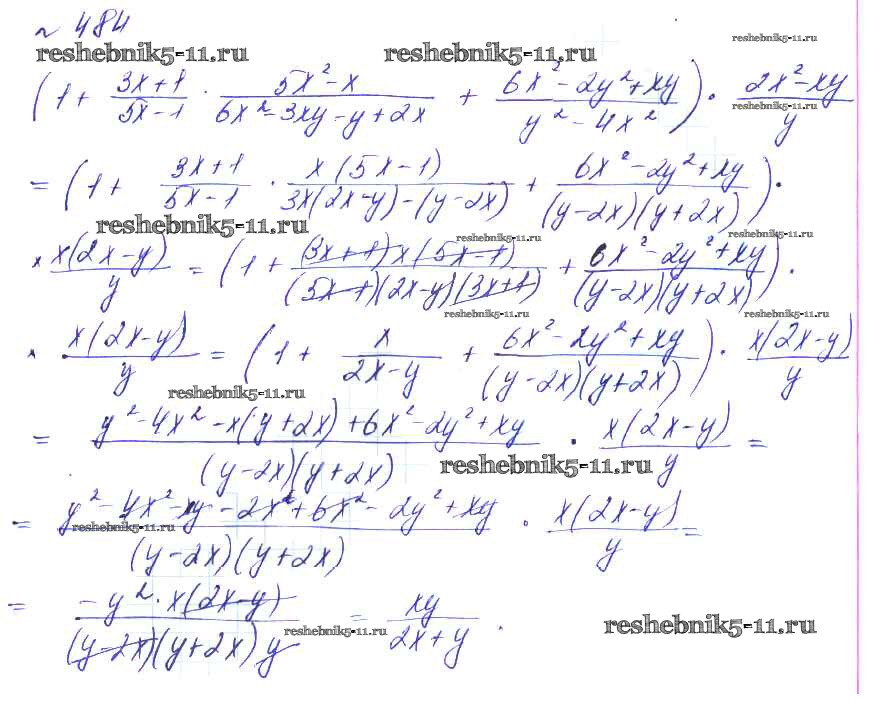 № 484
reshebnik5-11.ru reshebnik5-11.ru reshebnik5-11.ru
(1 + (3x+1)/(5x-1) · (5x²-x)/(6x²-3xy-y+2x) + (6x²-2y²+xy)/(y²-4x²)) · (2x²-xy)/y
reshebnik5-11.ru
= (1 + (3x+1)/(5x-1) · (x(5x-1))/(3x(2x-y)-(y-2x)) + (6x²-2y²+xy)/((y-2x)(y+2x))) ·
reshebnik5-11.ru reshebnik5-11.ru reshebnik5-11.ru
× (x(2x-y))/y = (1 + ((3x+1)x(5x-1))/((5x-1)(2x-y)(3x+1)) + (6x²-2y²+xy)/((y-2x)(y+2x))) ·
reshebnik5-11.ru reshebnik5-11.ru
· (x(2x-y))/y = (1 + x/(2x-y) + (6x²-2y²+xy)/((y-2x)(y+2x))) · (x(2x-y))/y
reshebnik5-11.ru
= (y²-4x²-x(y+2x)+6x²-2y²+xy)/((y-2x)(y+2x)) · (x(2x-y))/y =
reshebnik5-11.ru
= (y²-4x²-xy-2x²+6x²-2y²+xy)/((y-2x)(y+2x)) · (x(2x-y))/y =
reshebnik5-11.ru
= (-y²·x(2x-y))/((y-2x)(y+2x)y) = xy/(2x+y).
reshebnik5-11.ru reshebnik5-11.ru